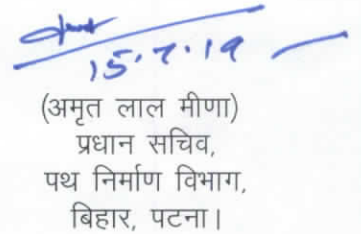 15.7.19
(अमृत लाल मीणा)
प्रधान सचिव,
पथ निर्माण विभाग,
बिहार, पटना।